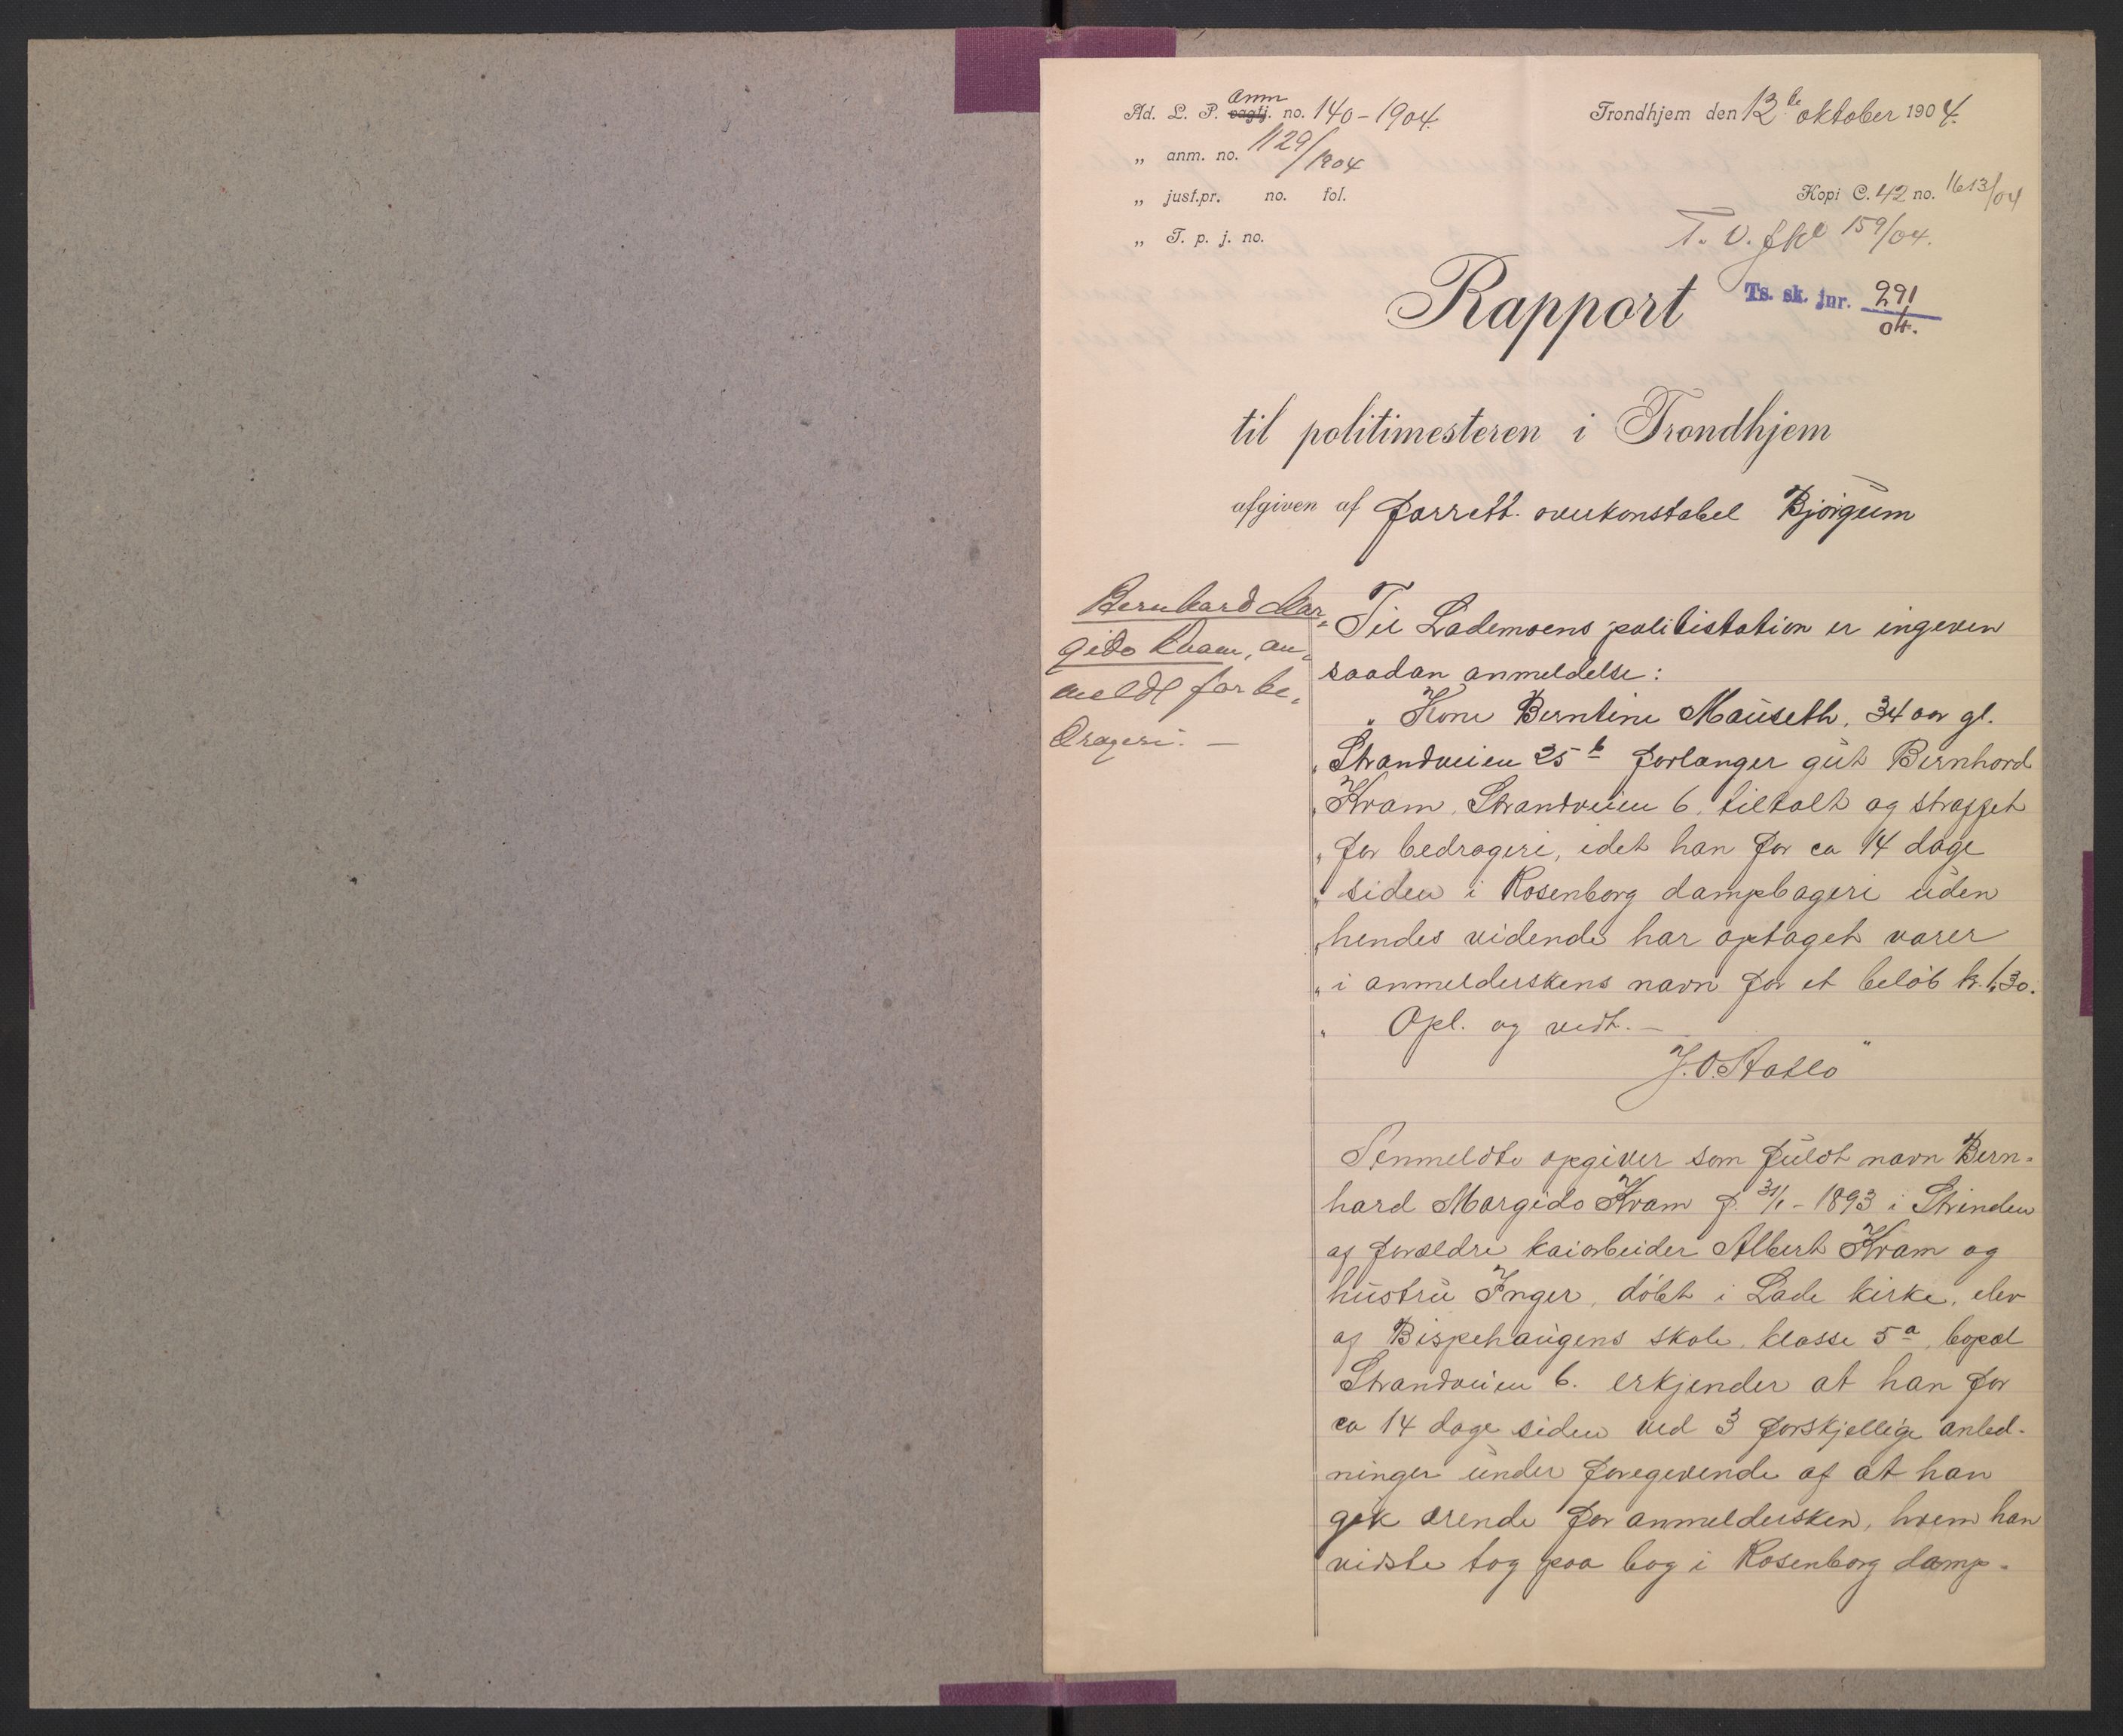 Ad. L. P. vagtj. anm no. 140-1904.
„ anm. no. 1129/1904
„ just.pr. no. fol.
„ T. p. j. no.
Trondhjem den 13de oktober 1904.
Kopi C. 42 no. 1613/04
T. V. 159/04.
Rapport
Ts. sk. jnr. 291/04.
til politimesteren i Trondhjem
afgiven af forrett. overkonstabel Bjørgum
Bernhard Mar„
gido Kvam, an„
meldt for be„
drageri. —
Til Lademoens politistation er ingeven
saadan anmeldelse:
„ Kone Berntine Mauseth, 34 aar gl.
„ Strandveien 35 b forlanger gut Bernhard
„ Kvam, Strandveien 6, tiltalt og straffet
„ for bedrageri, idet han for ca 14 dage
„ siden i Rosenborg dampbageri uden
„ hendes vidende har optaget varer
„ i anmelderskens navn for et beløb kr. 1,30.
„ Opl. og vedt. —
J. O. Stabló"
Anmeldte opgiver som fuldt navn Bern-
hard Margido Kvam f. 31/1-1893 i Strinden
af forældre kaiarbeider Albert Kvam og
hustru Inger, døbt i Lade kirke, elev
af Bispehaugens skole, klasse 5a, bopæl
Strandveien 6. erkjender at han for
ca 14 dage siden ved 3 forskjellige anled-
ninger under foregevende af at han
gik ærende for anmeldersken, hvem han
vidste tog paa bog i Rosenborg damp-